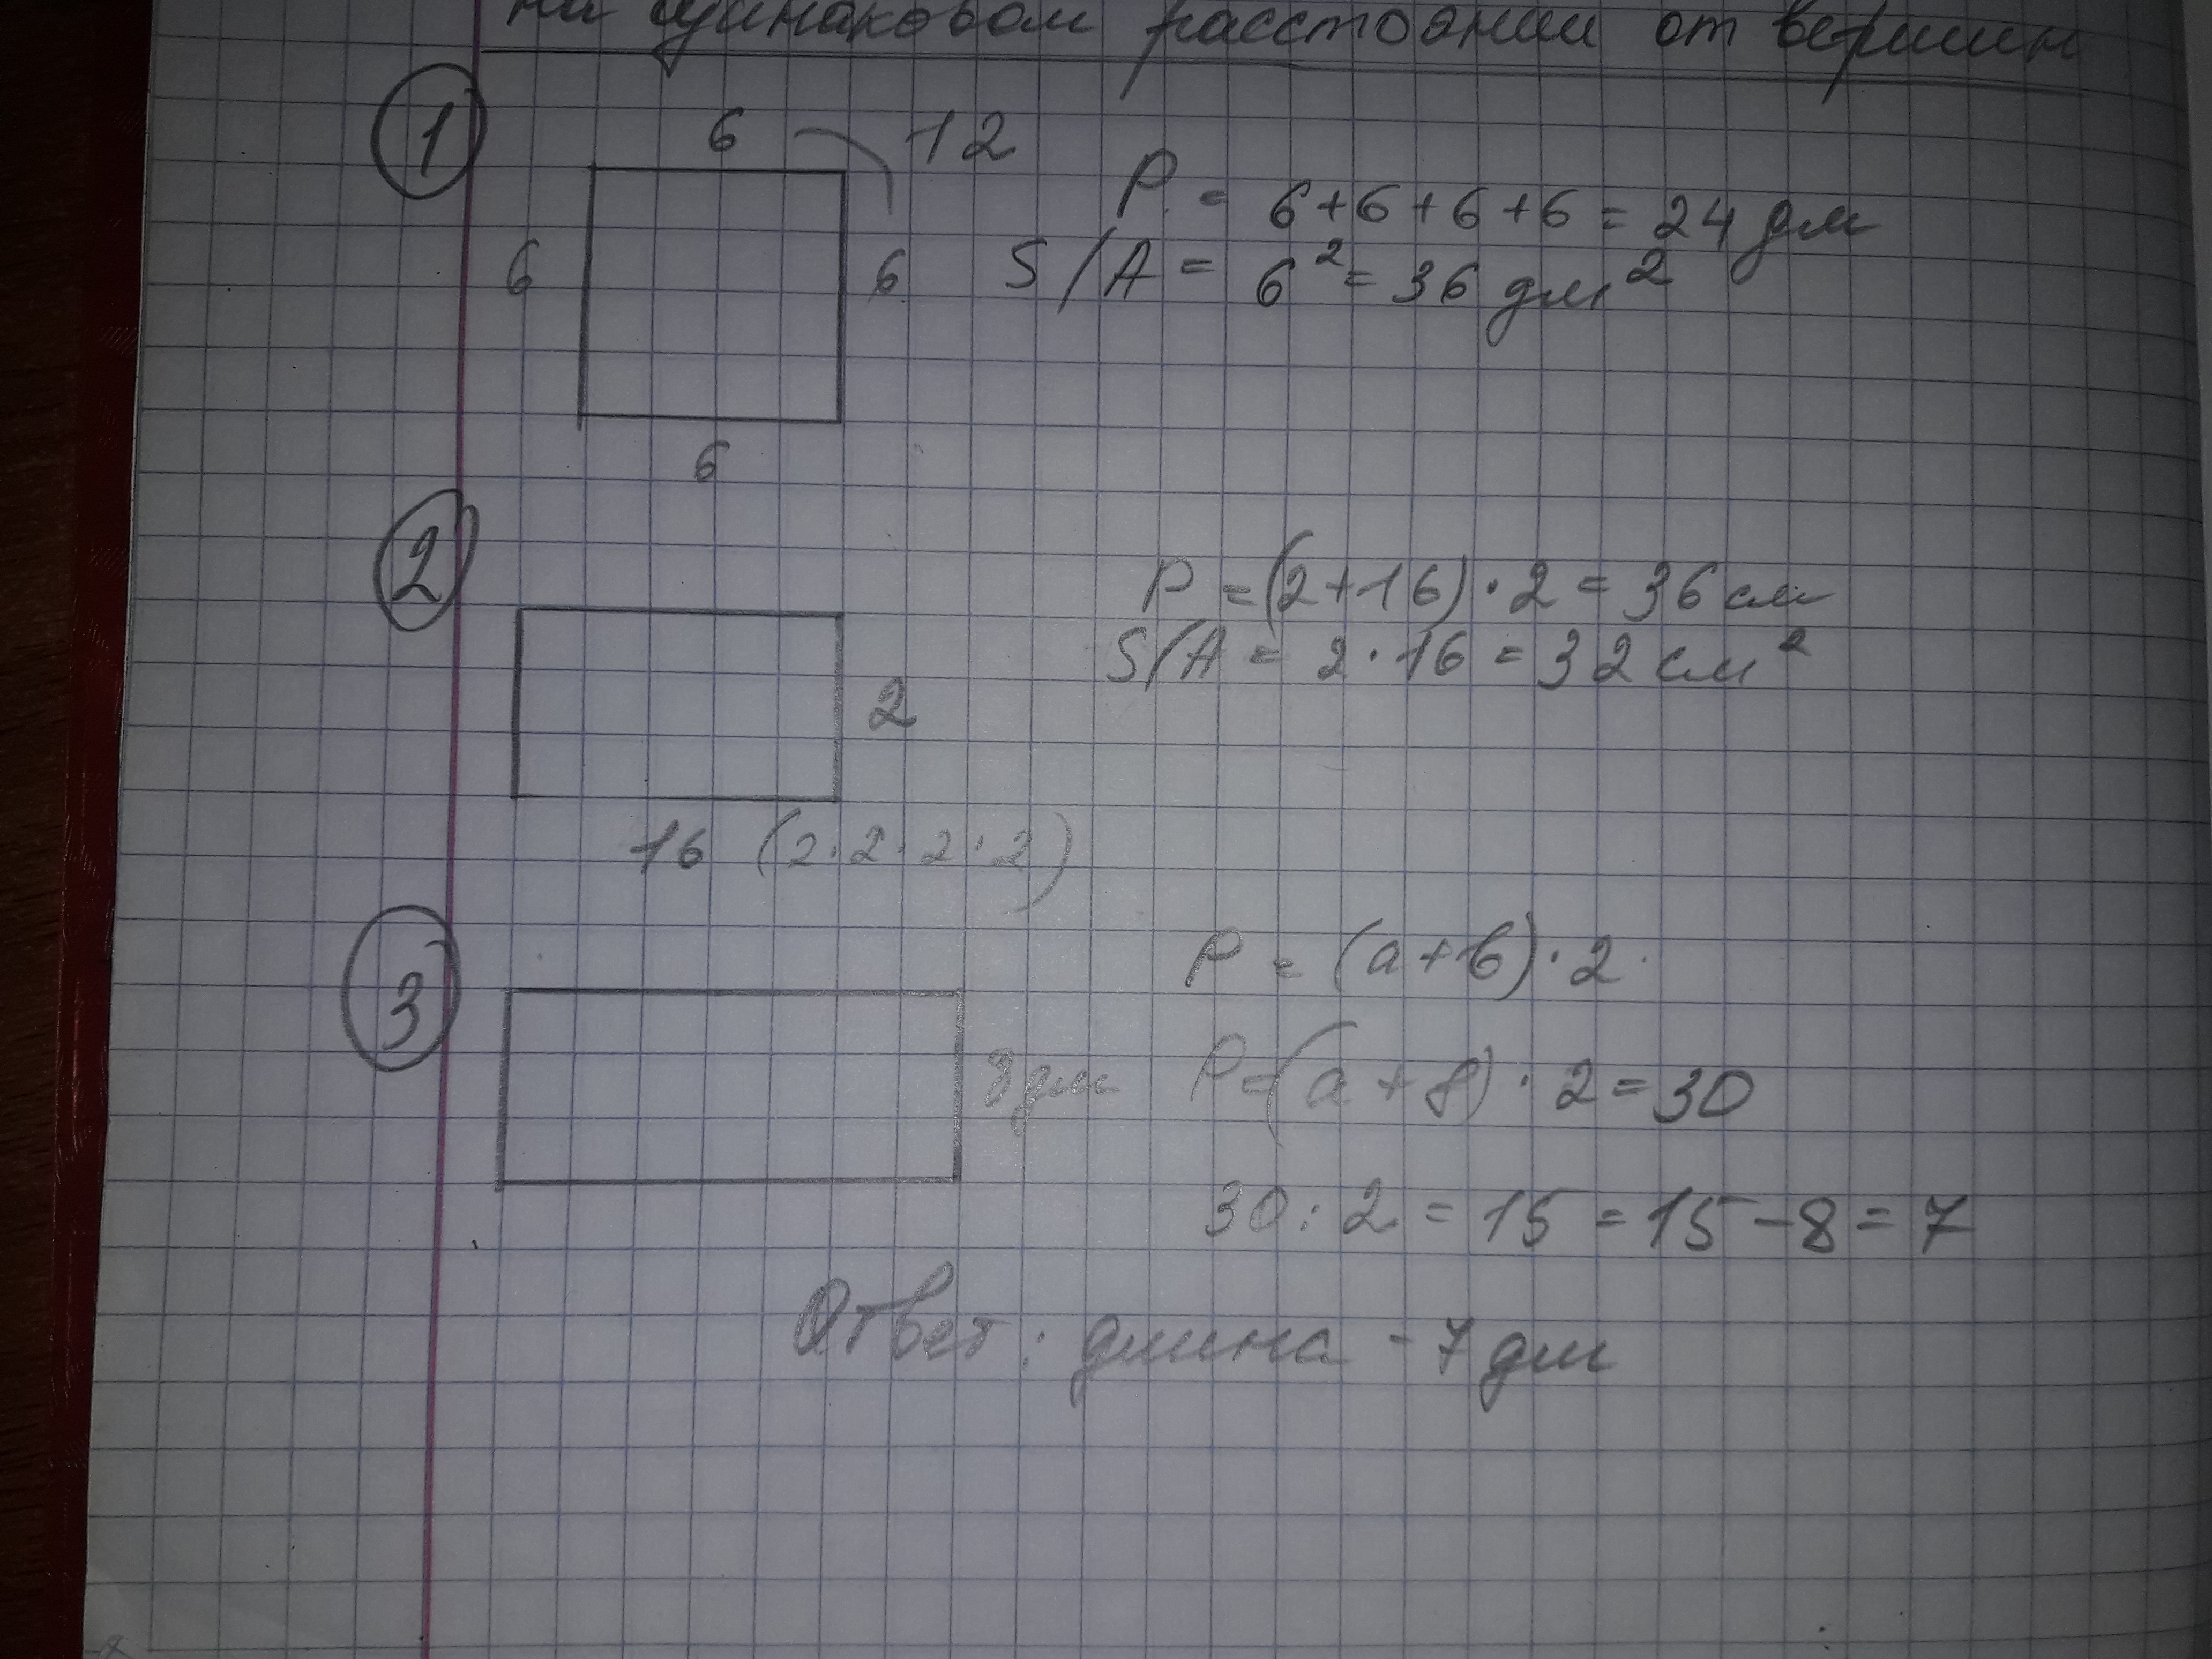 на одинаковом расстоянии от вершин
1
6 12
6 6
6
P = 6+6+6+6 = 24 дм
S/A = 6² = 36 дм²
2
P = (2+16)·2 = 36 см
S/A = 2·16 = 32 см²
2
16 (2·2·2·2)
3
P = (a+b)·2
8дм
P=(a+8)·2=30
30:2=15=15-8=7
Ответ: длина - 7 дм